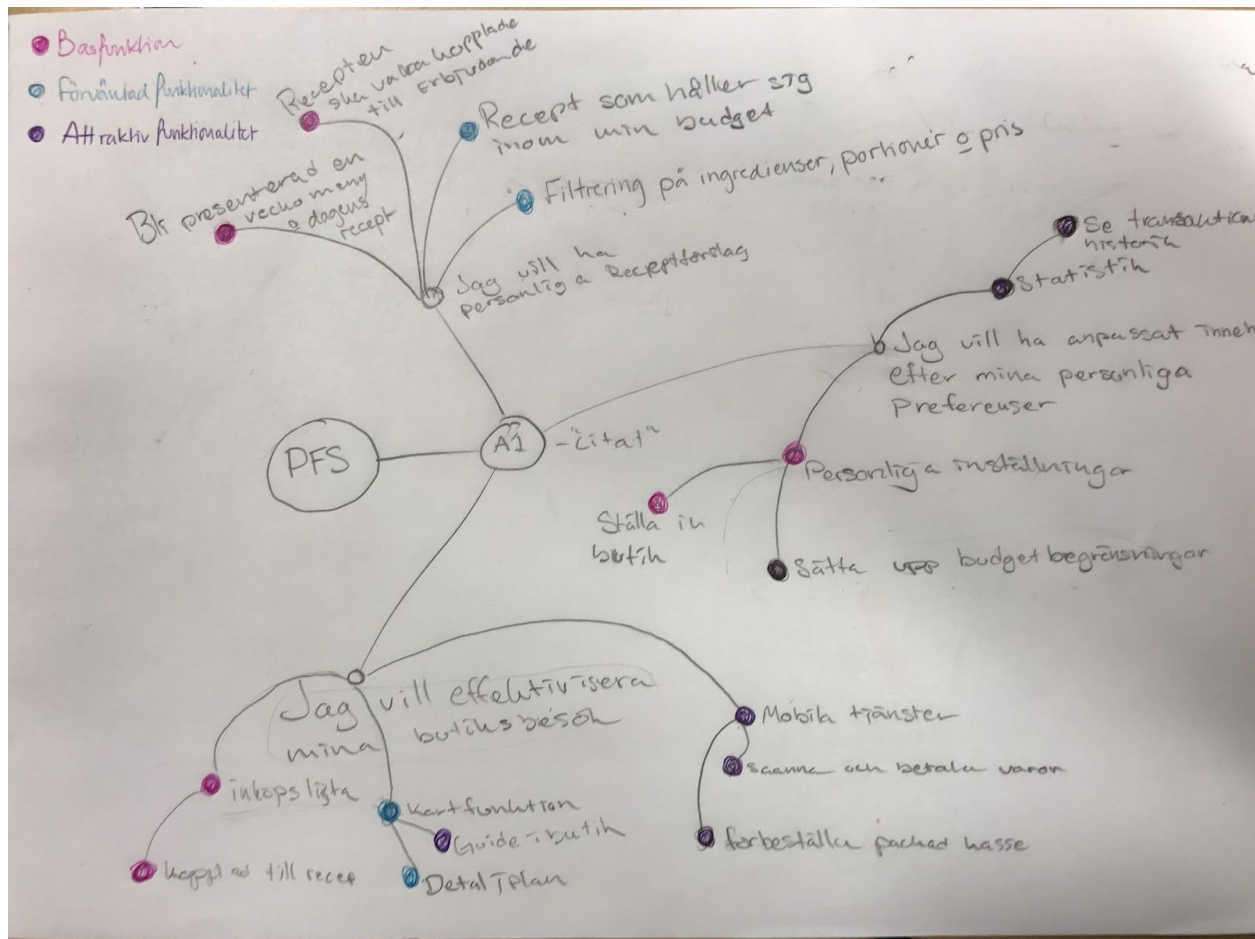 Basfunktion
Förväntad funktionalitet
Attraktiv funktionalitet
Recepten
ska vara kopplade
till erbjudande
Recept som håller sig
inom min budget
Filtrering på ingredienser, portioner o pris
Bli presenterad en
veckomeny
o dagens
recept
Jag vill ha
personliga Receptförslag
Se transaktions
historik
Statistik
Jag vill ha anpassat inneh
efter mina personliga
Preferenser
PFS
A1
-"citat"
Personliga inställningar
Ställa in
butik
Sätta upp budgetbegränsningar
Jag vill effektivisera
mina butiksbesök
Mobila tjänster
scanna och betala varor
förbeställa packad kasse
inköpslista
kopplad till recep
Kartfunktion
Guide i butik
Detaljplan